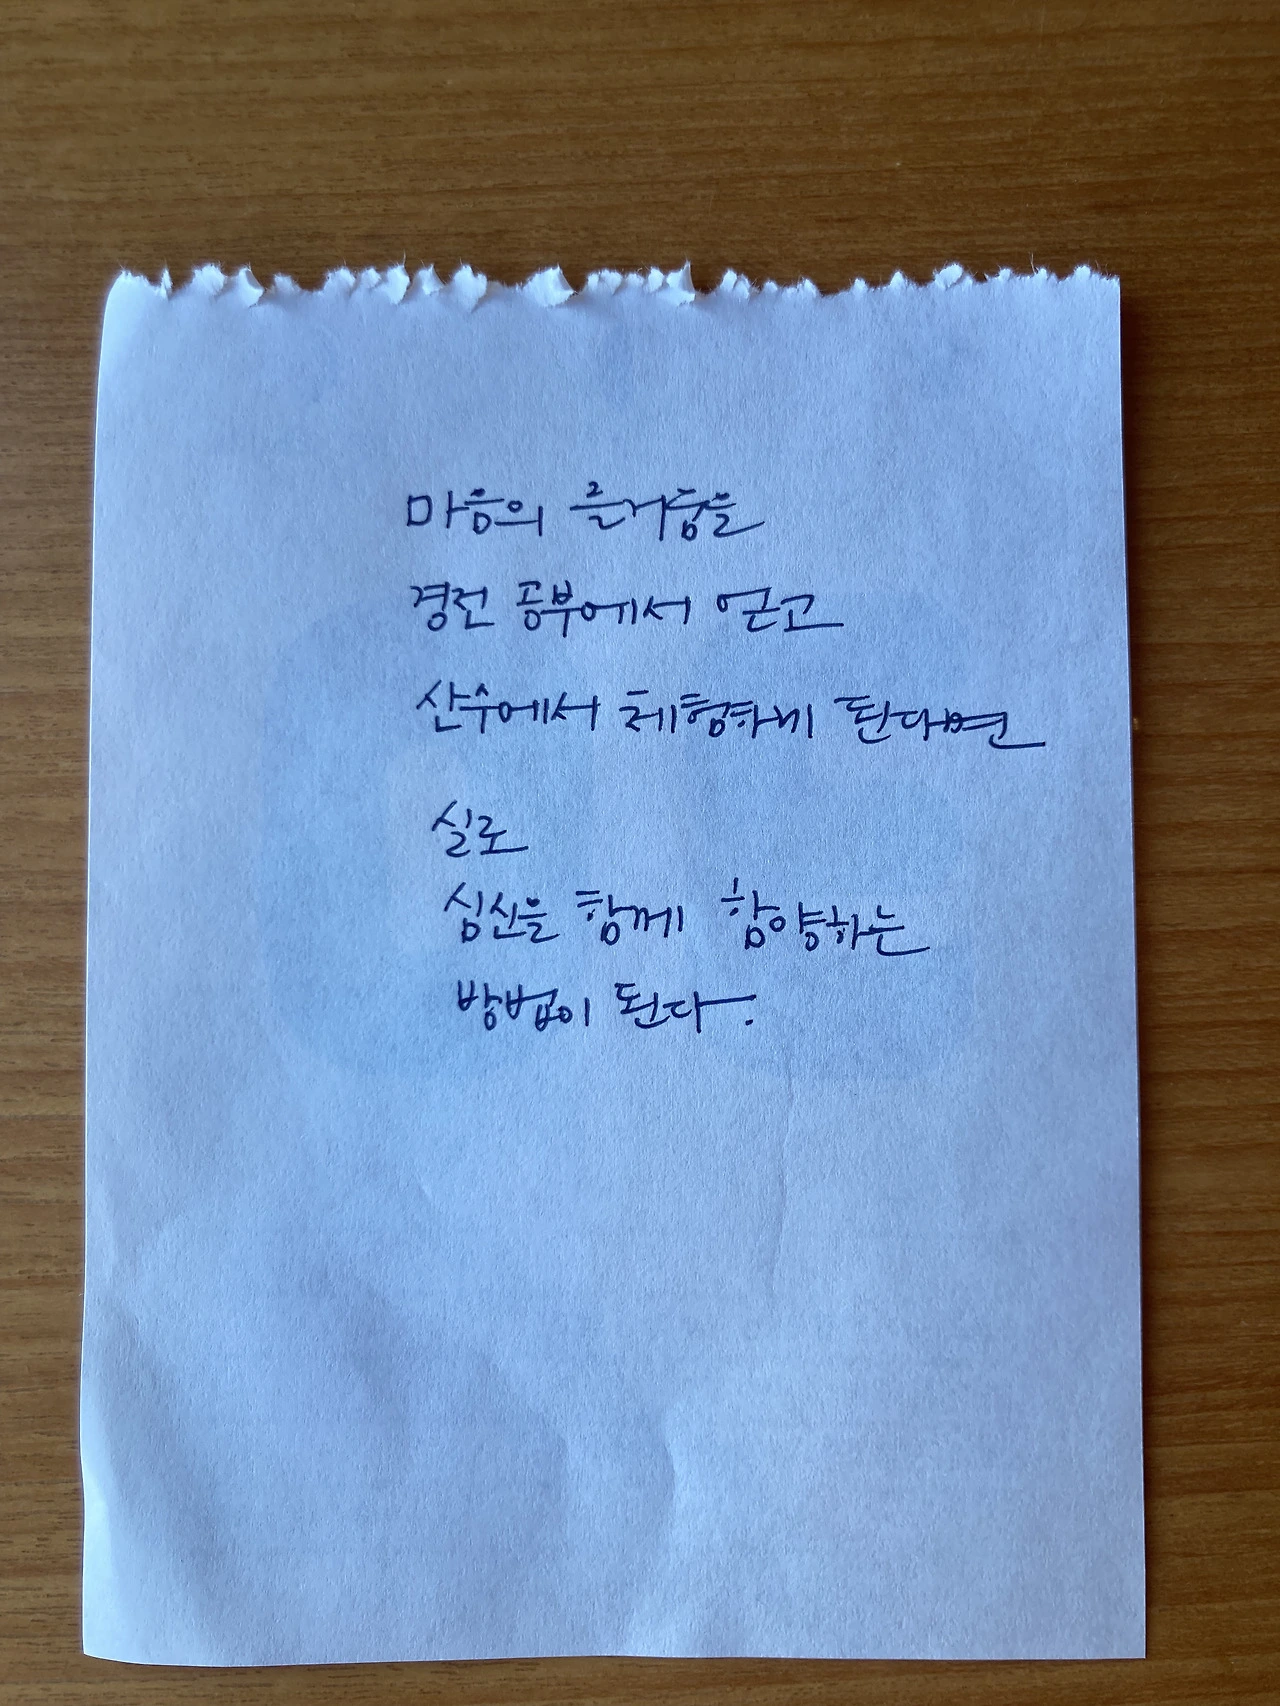 마음의 즐거움을
경전 공부에서 얻고
산수에서 체험하게 된다면
실로
심신을 함께 함양하는
방법이 된다.